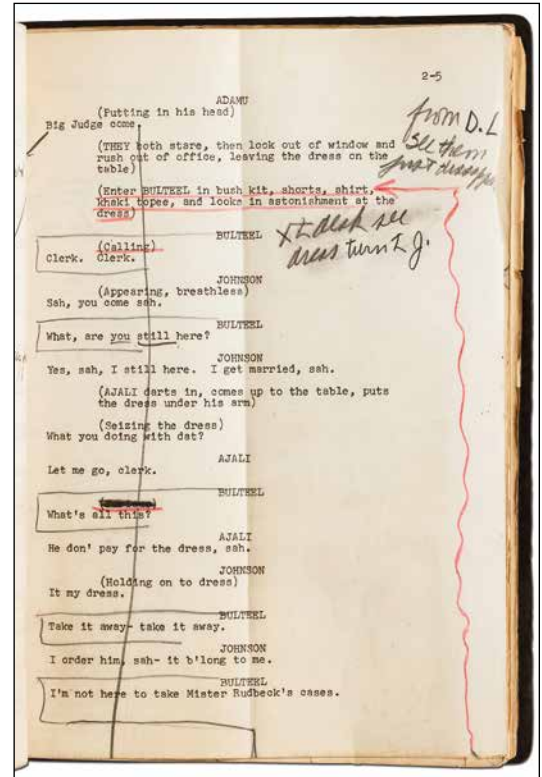 2-5
ADAMU
(Putting in his head)
Big Judge come.
(THEY both stare, then look out of window and
rush out of office, leaving the dress on the
table)
(Enter BULTEEL in bush kit, shorts, shirt,
khaki topee, and looks in astonishment at the
dress)
from D.L
see them
just
X L desk see
dress turn L J.
BULTEEL
(Calling)
Clerk. Clerk.
JOHNSON
(Appearing, breathless)
Sah, you come sah.
BULTEEL
What, are you still here?
JOHNSON
Yes, sah, I still here. I get married, sah.
(AJALI darts in, comes up to the table, puts
the dress under his arm)
(Seizing the dress)
What you doing with dat?
AJALI
Let me go, clerk.
BULTEEL
What's all this?
AJALI
He don' pay for the dress, sah.
JOHNSON
(Holding on to dress)
It my dress.
BULTEEL
Take it away- take it away.
JOHNSON
I order him, sah- it b'long to me.
BULTEEL
I'm not here to take Mister Rudbeck's cases.